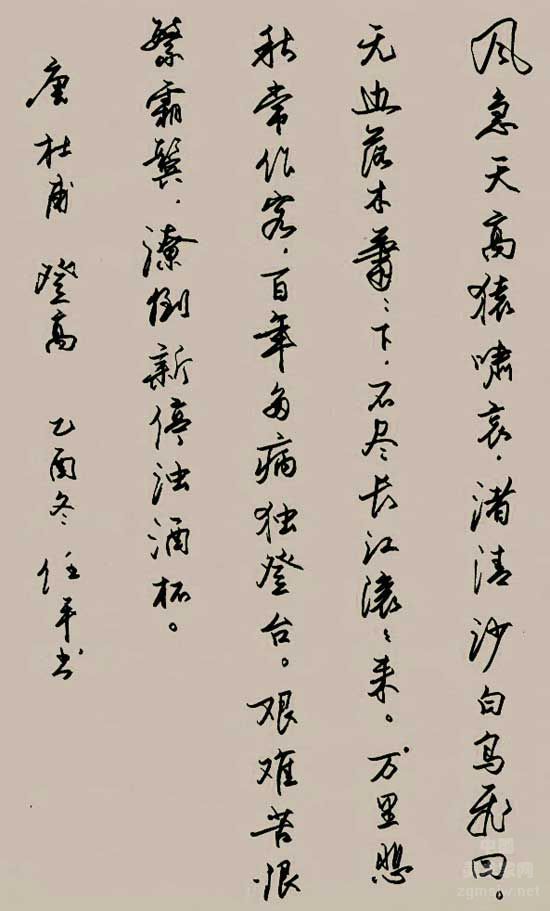 风急天高猿啸哀，渚清沙白鸟飞回。
无边落木萧萧下，不尽长江滚滚来。万里悲
秋常作客，百年多病独登台。艰难苦恨
繁霜鬓，潦倒新停浊酒杯。
唐 杜甫 登高 乙酉冬 任平书
zgmsjw.net